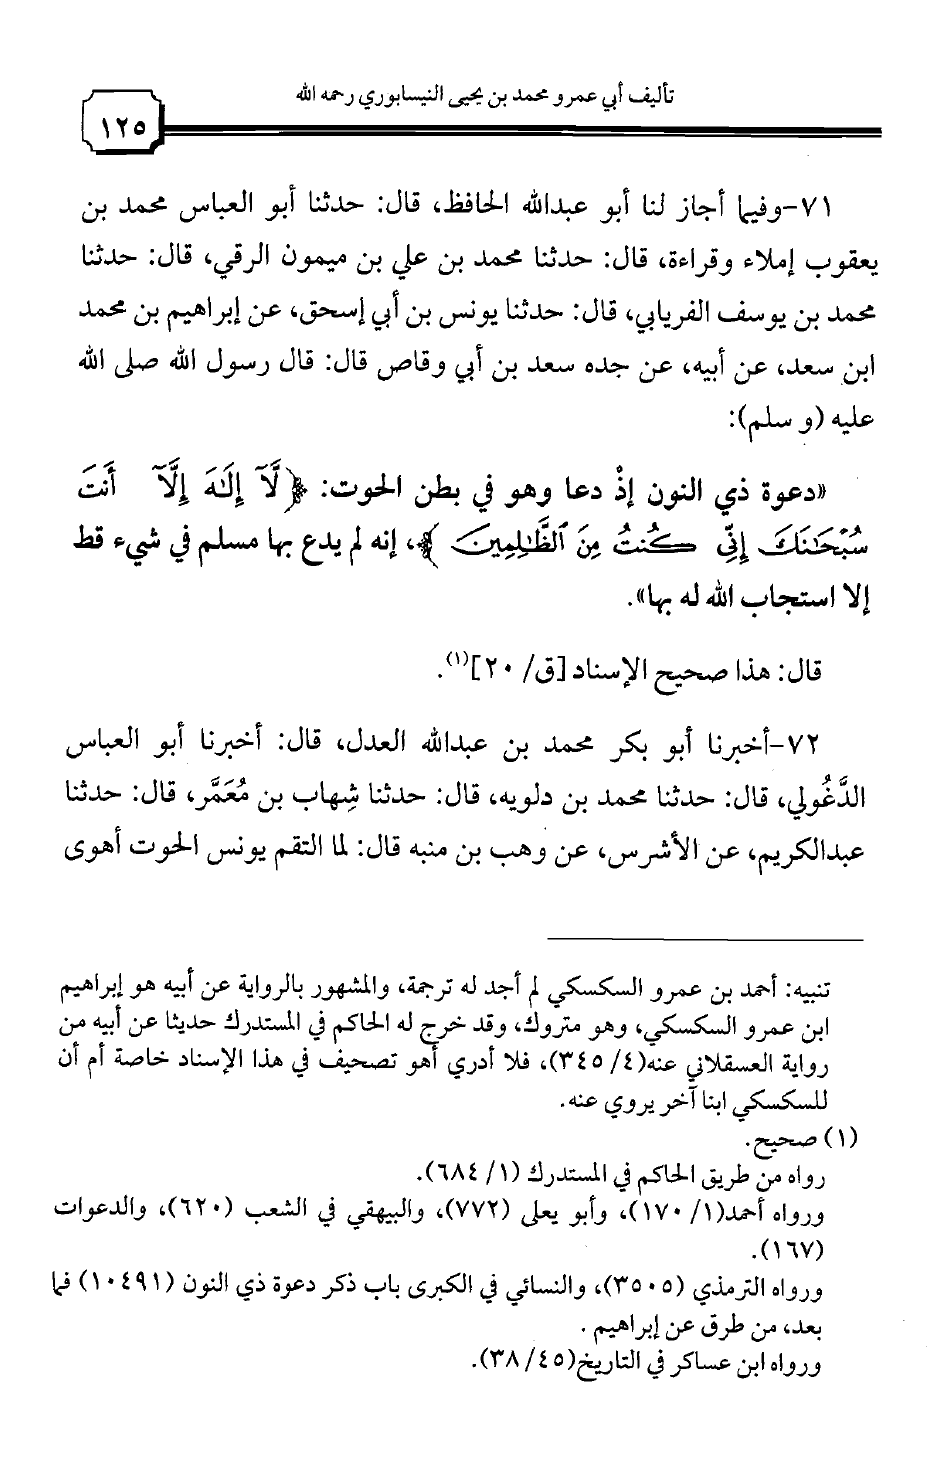 تأليف أبي عمرو محمد بن يحيى النيسابوري رحمه الله
١٢٥
٧١-وفيما أجاز لنا أبو عبدالله الحافظ، قال: حدثنا أبو العباس محمد بن
يعقوب إملاء وقراءة، قال: حدثنا محمد بن علي بن ميمون الرقي، قال: حدثنا
محمد بن يوسف الفريابي، قال: حدثنا يونس بن أبي إسحق، عن إبراهيم بن محمد
ابن سعد، عن أبيه، عن جده سعد بن أبي وقاص قال: قال رسول الله صلى الله
عليه (و سلم):
«دعوة ذي النون إذْ دعا وهو في بطن الحوت: ﴿لَّآ إِلَٰهَ إِلَّآ أَنتَ
سُبْحَٰنَكَ إِنِّي كُنتُ مِنَ ٱلظَّٰلِمِينَ﴾، إنه لم يدع بها مسلم في شيء قط
إلا استجاب الله له بها».
قال: هذا صحيح الإسناد [ق/ ٢٠](١).
٧٢-أخبرنا أبو بكر محمد بن عبدالله العدل، قال: أخبرنا أبو العباس
الدَّغُولي، قال: حدثنا محمد بن دلويه، قال: حدثنا شِهاب بن مُعَمَّر، قال: حدثنا
عبدالكريم، عن الأشرس، عن وهب بن منبه قال: لما التقم يونس الحوت أهوى
تنبيه: أحمد بن عمرو السكسكي لم أجد له ترجمة، والمشهور بالرواية عن أبيه هو إبراهيم
ابن عمرو السكسكي، وهو متروك، وقد خرج له الحاكم في المستدرك حديثا عن أبيه من
رواية العسقلاني عنه(٤/ ٣٤٥)، فلا أدري أهو تصحيف في هذا الإسناد خاصة أم أن
للسكسكي ابنا آخر يروي عنه.
(١) صحيح.
رواه من طريق الحاكم في المستدرك (١/ ٦٨٤).
ورواه أحمد(١/ ١٧٠)، وأبو يعلى (٧٧٢)، والبيهقي في الشعب (٦٢٠)، والدعوات
(١٦٧).
ورواه الترمذي (٣٥٠٥)، والنسائي في الكبرى باب ذكر دعوة ذي النون (١٠٤٩١) فما
بعد، من طرق عن إبراهيم .
ورواه ابن عساكر في التاريخ(٤٥/ ٣٨).